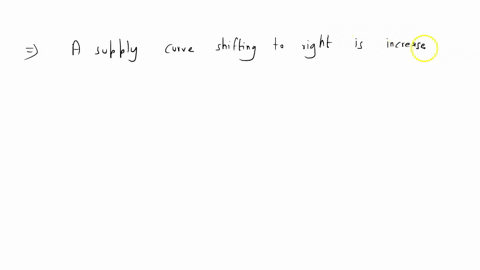 ⇒ A supply curve shifting to right is increase